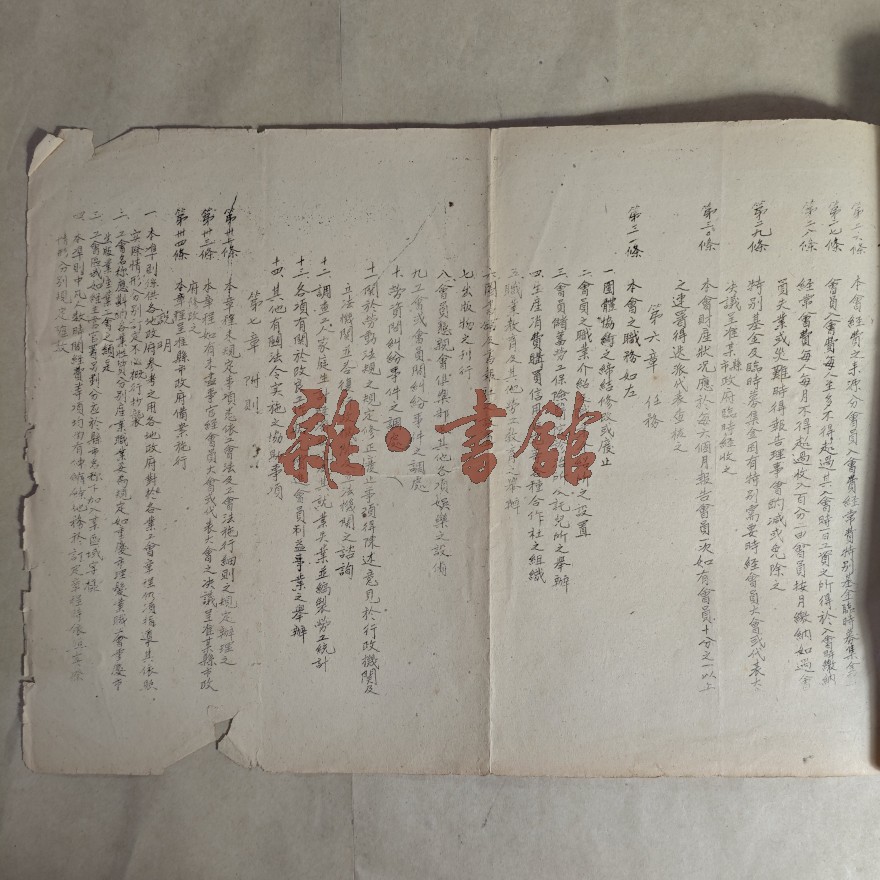 第二六條 本會經費之來源分會員入會費經常費特別基金臨時募集金
第二七條 會員入會費每人至多不得超過其入會時日工資之所得於入會時繳納
第二八條 經常會費每人每月不得超過收入百分之二由會員按月繳納如遇會
員失業或災難時得報告理事會酌減或免除之
第二九條 特別基金及臨時募集金因有特別需要時經會員大會或代表大
會決議呈准某縣市政府臨時經收之
第三〇條 本會財產狀況應於每六個月報告會員一次如有會員十分之一以上
之連署得選派代表查核之
第六章 任務
第三一條 本會之職務如左
一團體協約之締結修改或廢止
二會員之職業介紹 之設置
三會員儲蓄勞工保險 託兒所之舉辦
四生產消費購買信用 種合作社之組織
五職業教育及其他勞工教育之舉辦
六圖書館及書報社
七出版物之刊行
八會員懇親會俱樂部 其他各項娛樂之設備
九工會或會員間糾紛事件之調處
十勞資間糾紛事件之調處
十一關於勞動法規之規定修正廢止事項得陳述意見於行政機關及
立法機關並答復 立法機關之諮詢
十二調查工人家庭生 其就業失業並編製勞工統計
十三各項有關於改良工 會員利益事業之舉辦
十四其他有關法令實施之協助事項
第七章 附則
第卅二條 本章程未規定事項悉依工會法及工會法施行細則之規定辦理之
第卅三條 本章程如有未盡事宜經會員大會或代表大會之決議呈准某縣市政
府修改之
第卅四條 本章程呈准縣市政府備案施行
說明
一 本準則係供各地政府參考之用各地政府對於各業工會章程仍須指導其依照
實際情形分別訂定不必概行抄襲
二 工會名稱應對於各業性質分別產業職業妥為規定如重慶市理髮業職工會重慶市
三 工會區域如
四 本準則中凡人數時間經費等項均留有伸縮餘地務於訂定章程時依照實際
情形分別規定確數
雜·書館